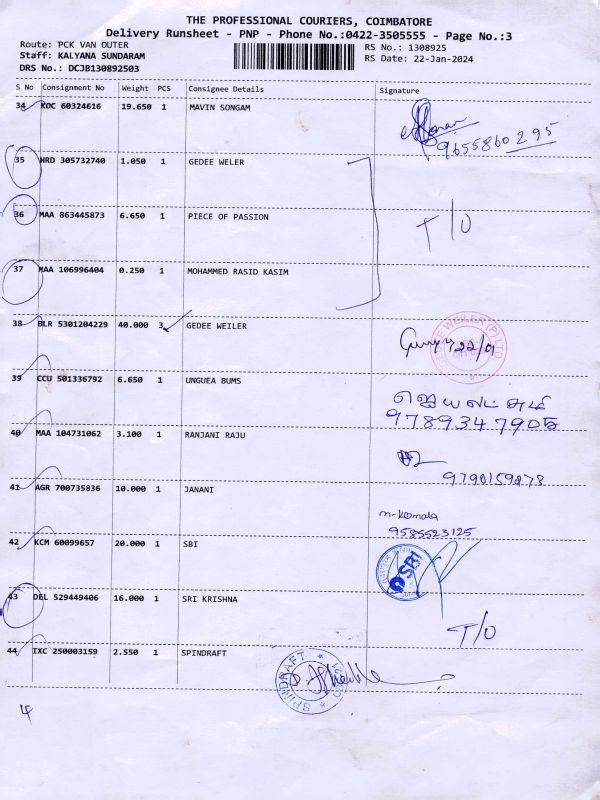 THE PROFESSIONAL COURIERS, COIMBATORE
Delivery Runsheet - PNP - Phone No.:0422-3505555 - Page No.:3
Route: PCK VAN OUTER
RS No.: 1308925
Staff: KALYANA SUNDARAM
RS Date: 22-Jan-2024
DRS No.: DCJB130892503
S No Consignment No Weight PCS Consignee Details Signature
34 KOC 60324616 19.650 1 MAVIN SONGAM
9655860295
35 HRD 305732740 1.050 1 GEDEE WELER
36 MAA 863445873 6.650 1 PIECE OF PASSION
T/O
37 MAA 106996404 0.250 1 MOHAMMED RASID KASIM
38 BLR 5301204229 40.000 3 GEDEE WEILER
22/01
39 CCU 501336792 6.650 1 UNGUEA BUMS
9789347905
40 MAA 104731062 3.100 1 RANJANI RAJU
9790159273
41 AGR 700735836 10.000 1 JANANI
m-Komala
9585523125
42 KCM 60099657 20.000 1 SBI
SBI
43 DEL 529449406 16.000 1 SRI KRISHNA
T/O
44 IXC 250003159 2.550 1 SPINDRAFT
SPINDRAFT
4